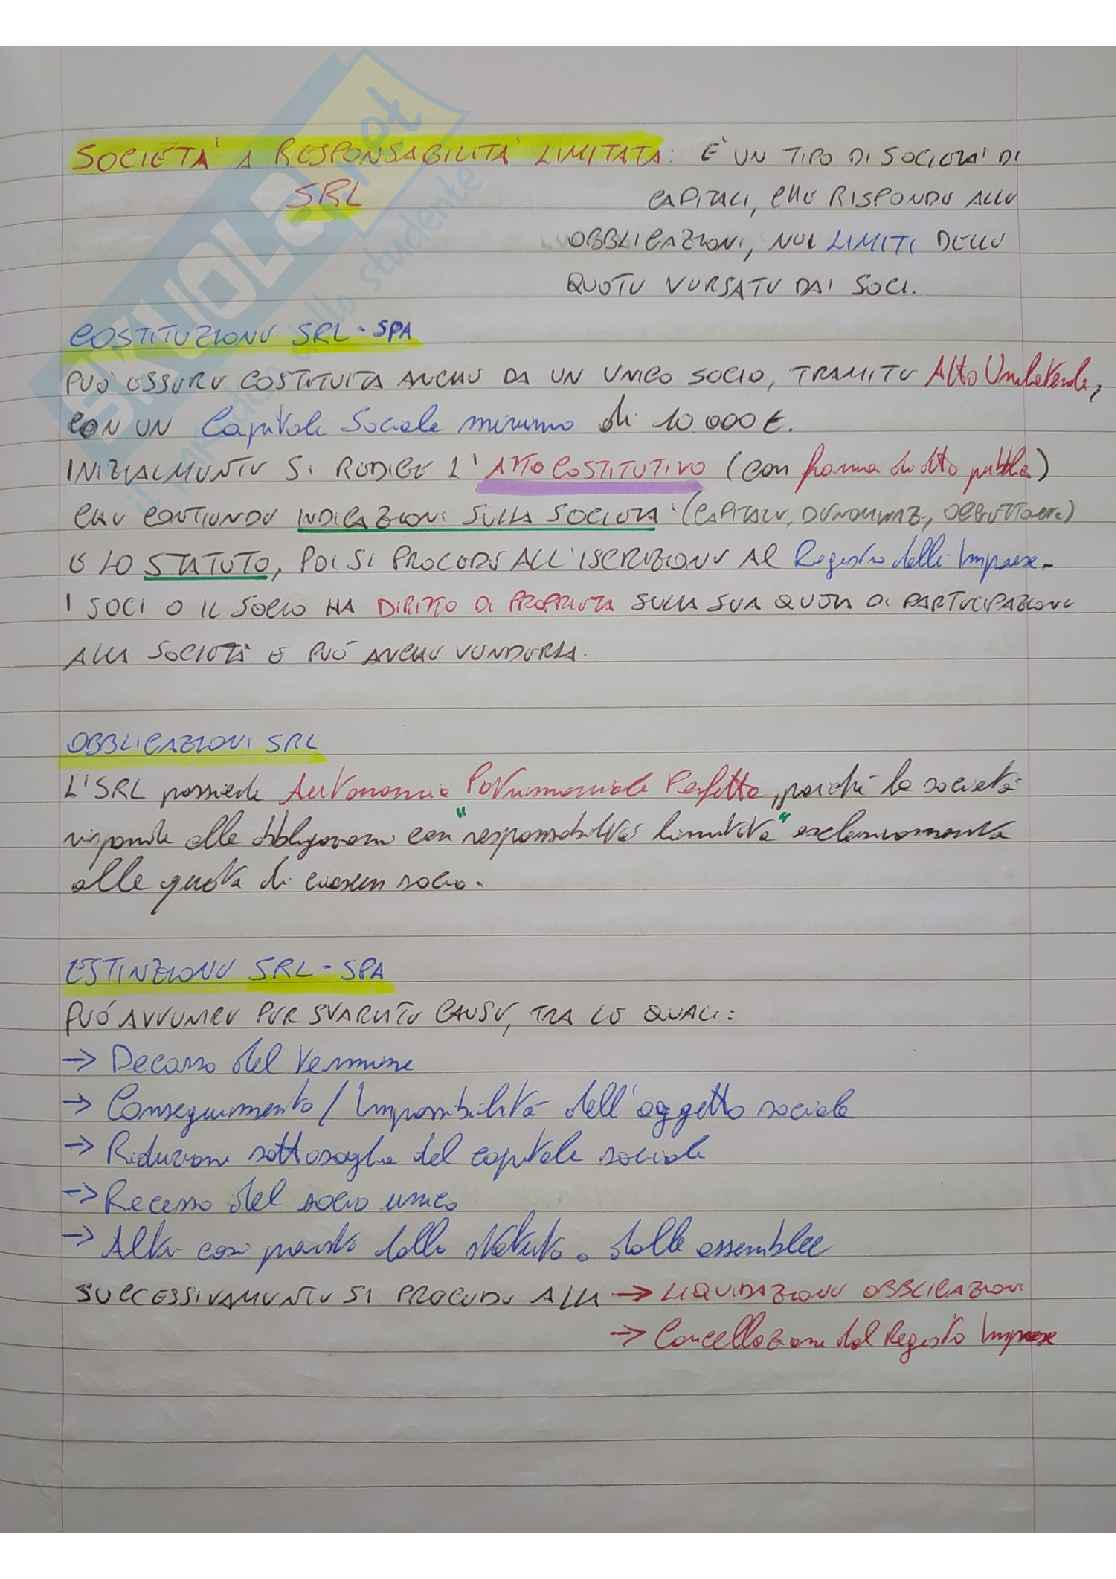 SOCIETA' A RESPONSABILITA' LIMITATA: E' UN TIPO DI SOCIETA' DI
SRL CAPITALI, CHE RISPONDE ALLE
OBBLIGAZIONI, NEI LIMITI DELLE
QUOTE VERSATE DAI SOCI.
COSTITUZIONE SRL - SPA
PUÓ ESSERE COSTITUITA ANCHE DA UN UNICO SOCIO, TRAMITE Atto Unilaterale,
CON UN Capitale Sociale minimo di 10.000€.
INIZIALMENTE SI REDIGE L'ATTO COSTITUTIVO (con forma di atto pubblico)
CHE CONTIENE INDICAZIONI SULLA SOCIETA' (CAPITALE, DENOMINAZ., OGGETTO)
E LO STATUTO, POI SI PROCEDE ALL'ISCRIZIONE AL Registro delle Imprese.
I SOCI O IL SOCIO HA DIRITTO DI PROPRIETA SULLA SUA QUOTA DI PARTECIPAZIONE
ALLA SOCIETÀ E PUÓ ANCHE VENDERLA.
OBBLIGAZIONI SRL
L'SRL possiede Autonomia Patrimoniale Perfetta, poiché la società
risponde alle obbligazioni con "responsabilità limitata" esclusivamente
alle quote di ciascun socio.
ESTINZIONE SRL - SPA
PUÓ AVVENIRE PER SVARIATE CAUSE, TRA LE QUALI:
→ Decorso del termine
→ Conseguimento / Impossibilità dell'oggetto sociale
→ Riduzione sottosoglia del capitale sociale
→ Recesso del socio unico
→ Altri casi previsti dallo statuto o dalle assemblee
SUCCESSIVAMENTE SI PROCEDE ALLA → LIQUIDAZIONE OBBLIGAZIONI
→ Cancellazione dal Registro Imprese
SKUOLA.net